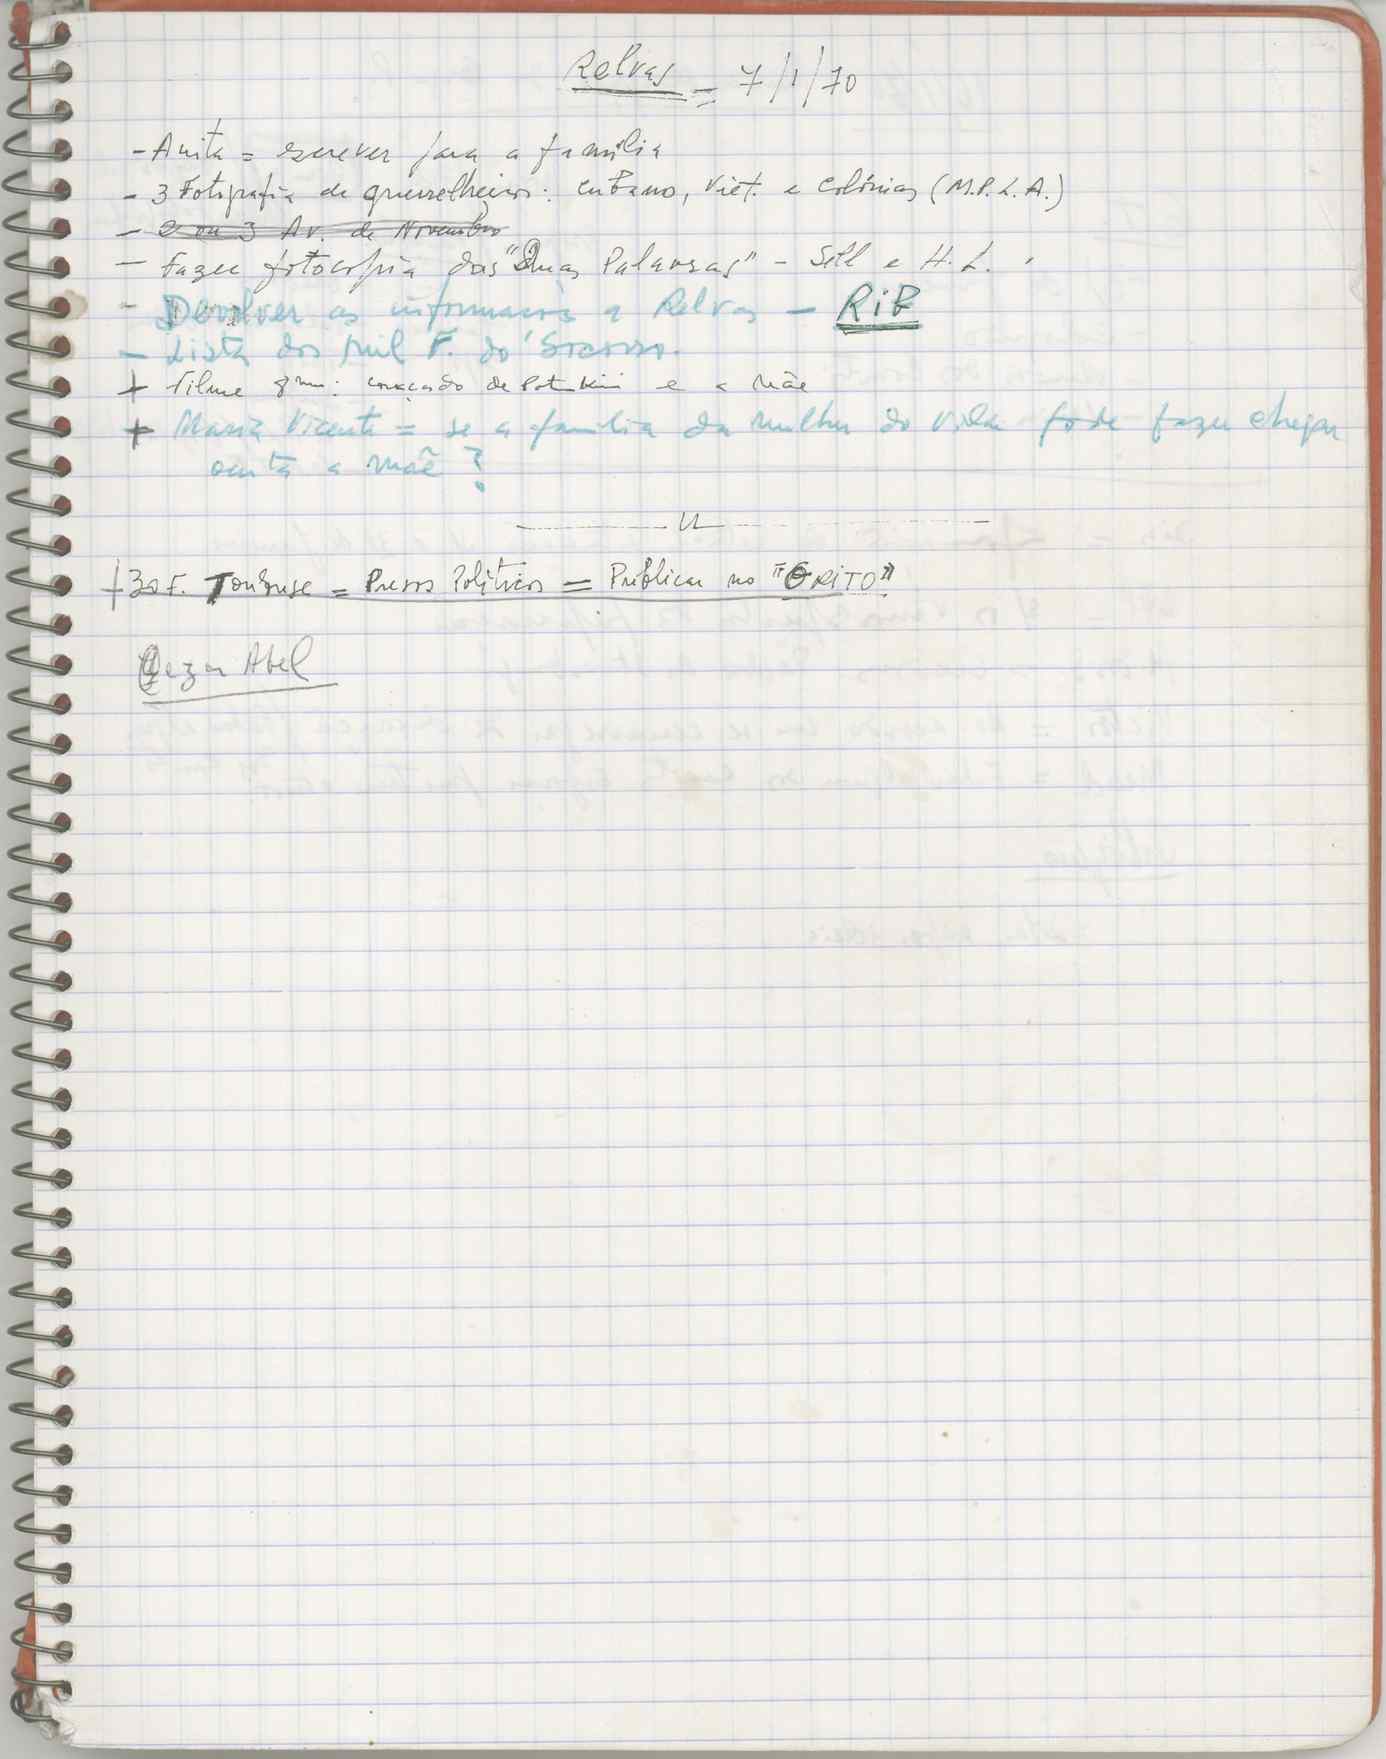 Relvas = 7/1/70
- Anita = escrever para a família
- 3 Fotografia de guerrelheiros: cubano, Viet. e Colónias (M.P.L.A.)
- 2 ou 3 Av. de Novembro
- Fazer fotocopia das "Duas Palavras" - Sell e H. L.
- Devolver as informacões a Relvas - RiB
- Lista dos mil F. do Socorro.
+ Filme 8mm: couraçado de Potemkin e a Mãe
+ Maria Vicente = se a família da mulher do Vila pode fazer chegar
carta a mãe?
+ 30 F. Toulouse = Presos Politicos = Publicar no "GRITO"
Cezar Abel